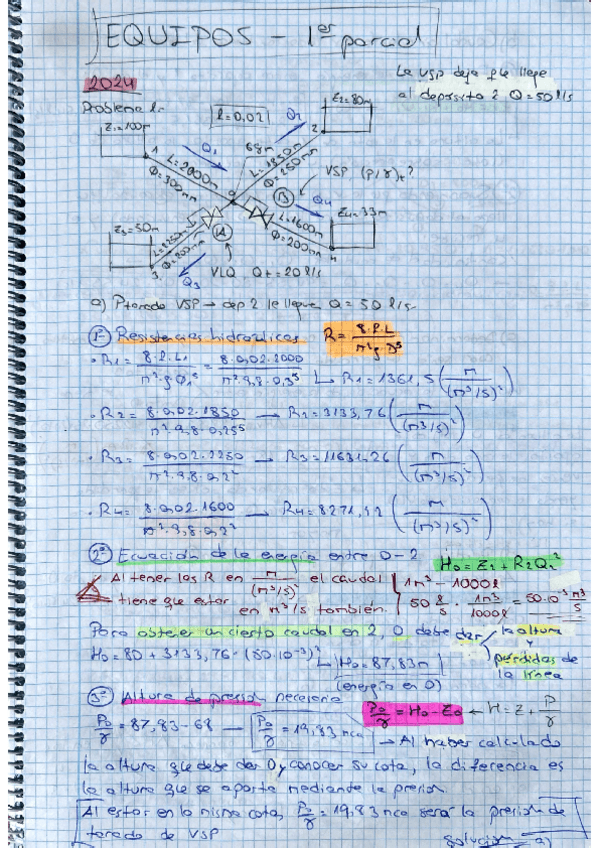 EQUIPOS - 1er parcial
2024
La VSP deja que llegue
al depósito 2 Q=50 l/s
Problema 1.-
l=0,02
Z1=100m
Z2=80m
Q1
Q2
68m
L=2000m
Φ=300mm
L=1850m
Φ=250mm
VSP (P/γ)t?
B
Q4
Z4=33m
L=1600m
Φ=200mm
Z3=50m
Φ=200mm
A
Q3
VLQ, Qt=20 l/s
a) Ptarado VSP → dep 2 le llegue Q=50 l/s.
1º Resistencias hidráulicas R = 8·f·L / π²g·D⁵
• R1 = 8·f·L1 / π²g Φ1⁵ = 8·0,02·2000 / π²·9,8·0,3⁵ ↳ R1=1361,5 (m / (m³/s)²)
• R2 = 8·0,02·1850 / π²·9,8·0,25⁵ → R2=3133,76 (m / (m³/s)²)
• R3 = 8·0,02·2250 / π²·9,8·0,2⁵ → R3=11631,26 (m / (m³/s)²)
• R4 = 8·0,02·1600 / π²·9,8·0,2⁵ → R4=8271,12 (m / (m³/s)²)
2º Ecuación de la energía entre 0-2 H0 = Z2 + R2Q2²
Al tener las R en m / (m³/s)² el caudal
tiene que estar en m³/s también.
1m³ - 1000l
50 l/s · 1m³/1000l = 50·10⁻³ m³/s
Para obtener un cierto caudal en 2, 0 debe dar la altura y pérdidas de la línea
H0 = 80 + 3133,76·(50·10⁻³)² ↳ H0=87,83m
(energía en 0)
3º Altura de presión necesaria P0/γ = H0-Z0 ← H=Z+P/γ
P0/γ = 87,83-68 → P0/γ = 19,83 mca
→ Al haber calculado
la altura que debe dar 0 y conocer su cota, la diferencia es
la altura que se aporta mediante la presión
Al estar en la misma cota, P0/γ = 19,83 mca será la presión de
tarado de VSP
solución a)